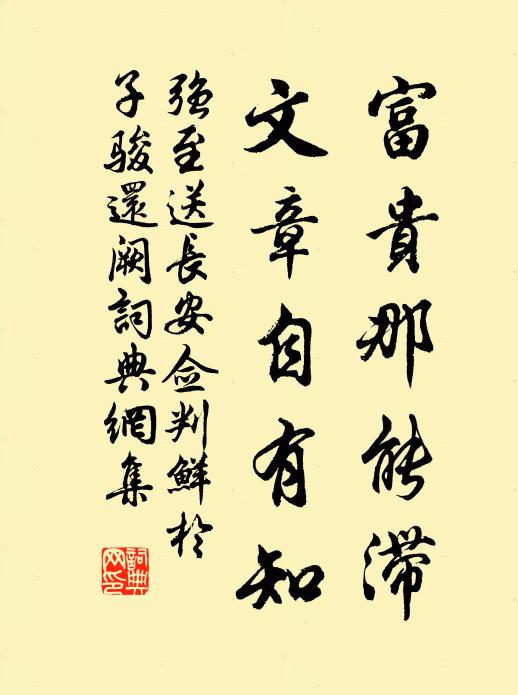 富貴那能滯
文章自有知
強至送長安僉判鮮於
子駿還闕詞典網集
詞典
网印